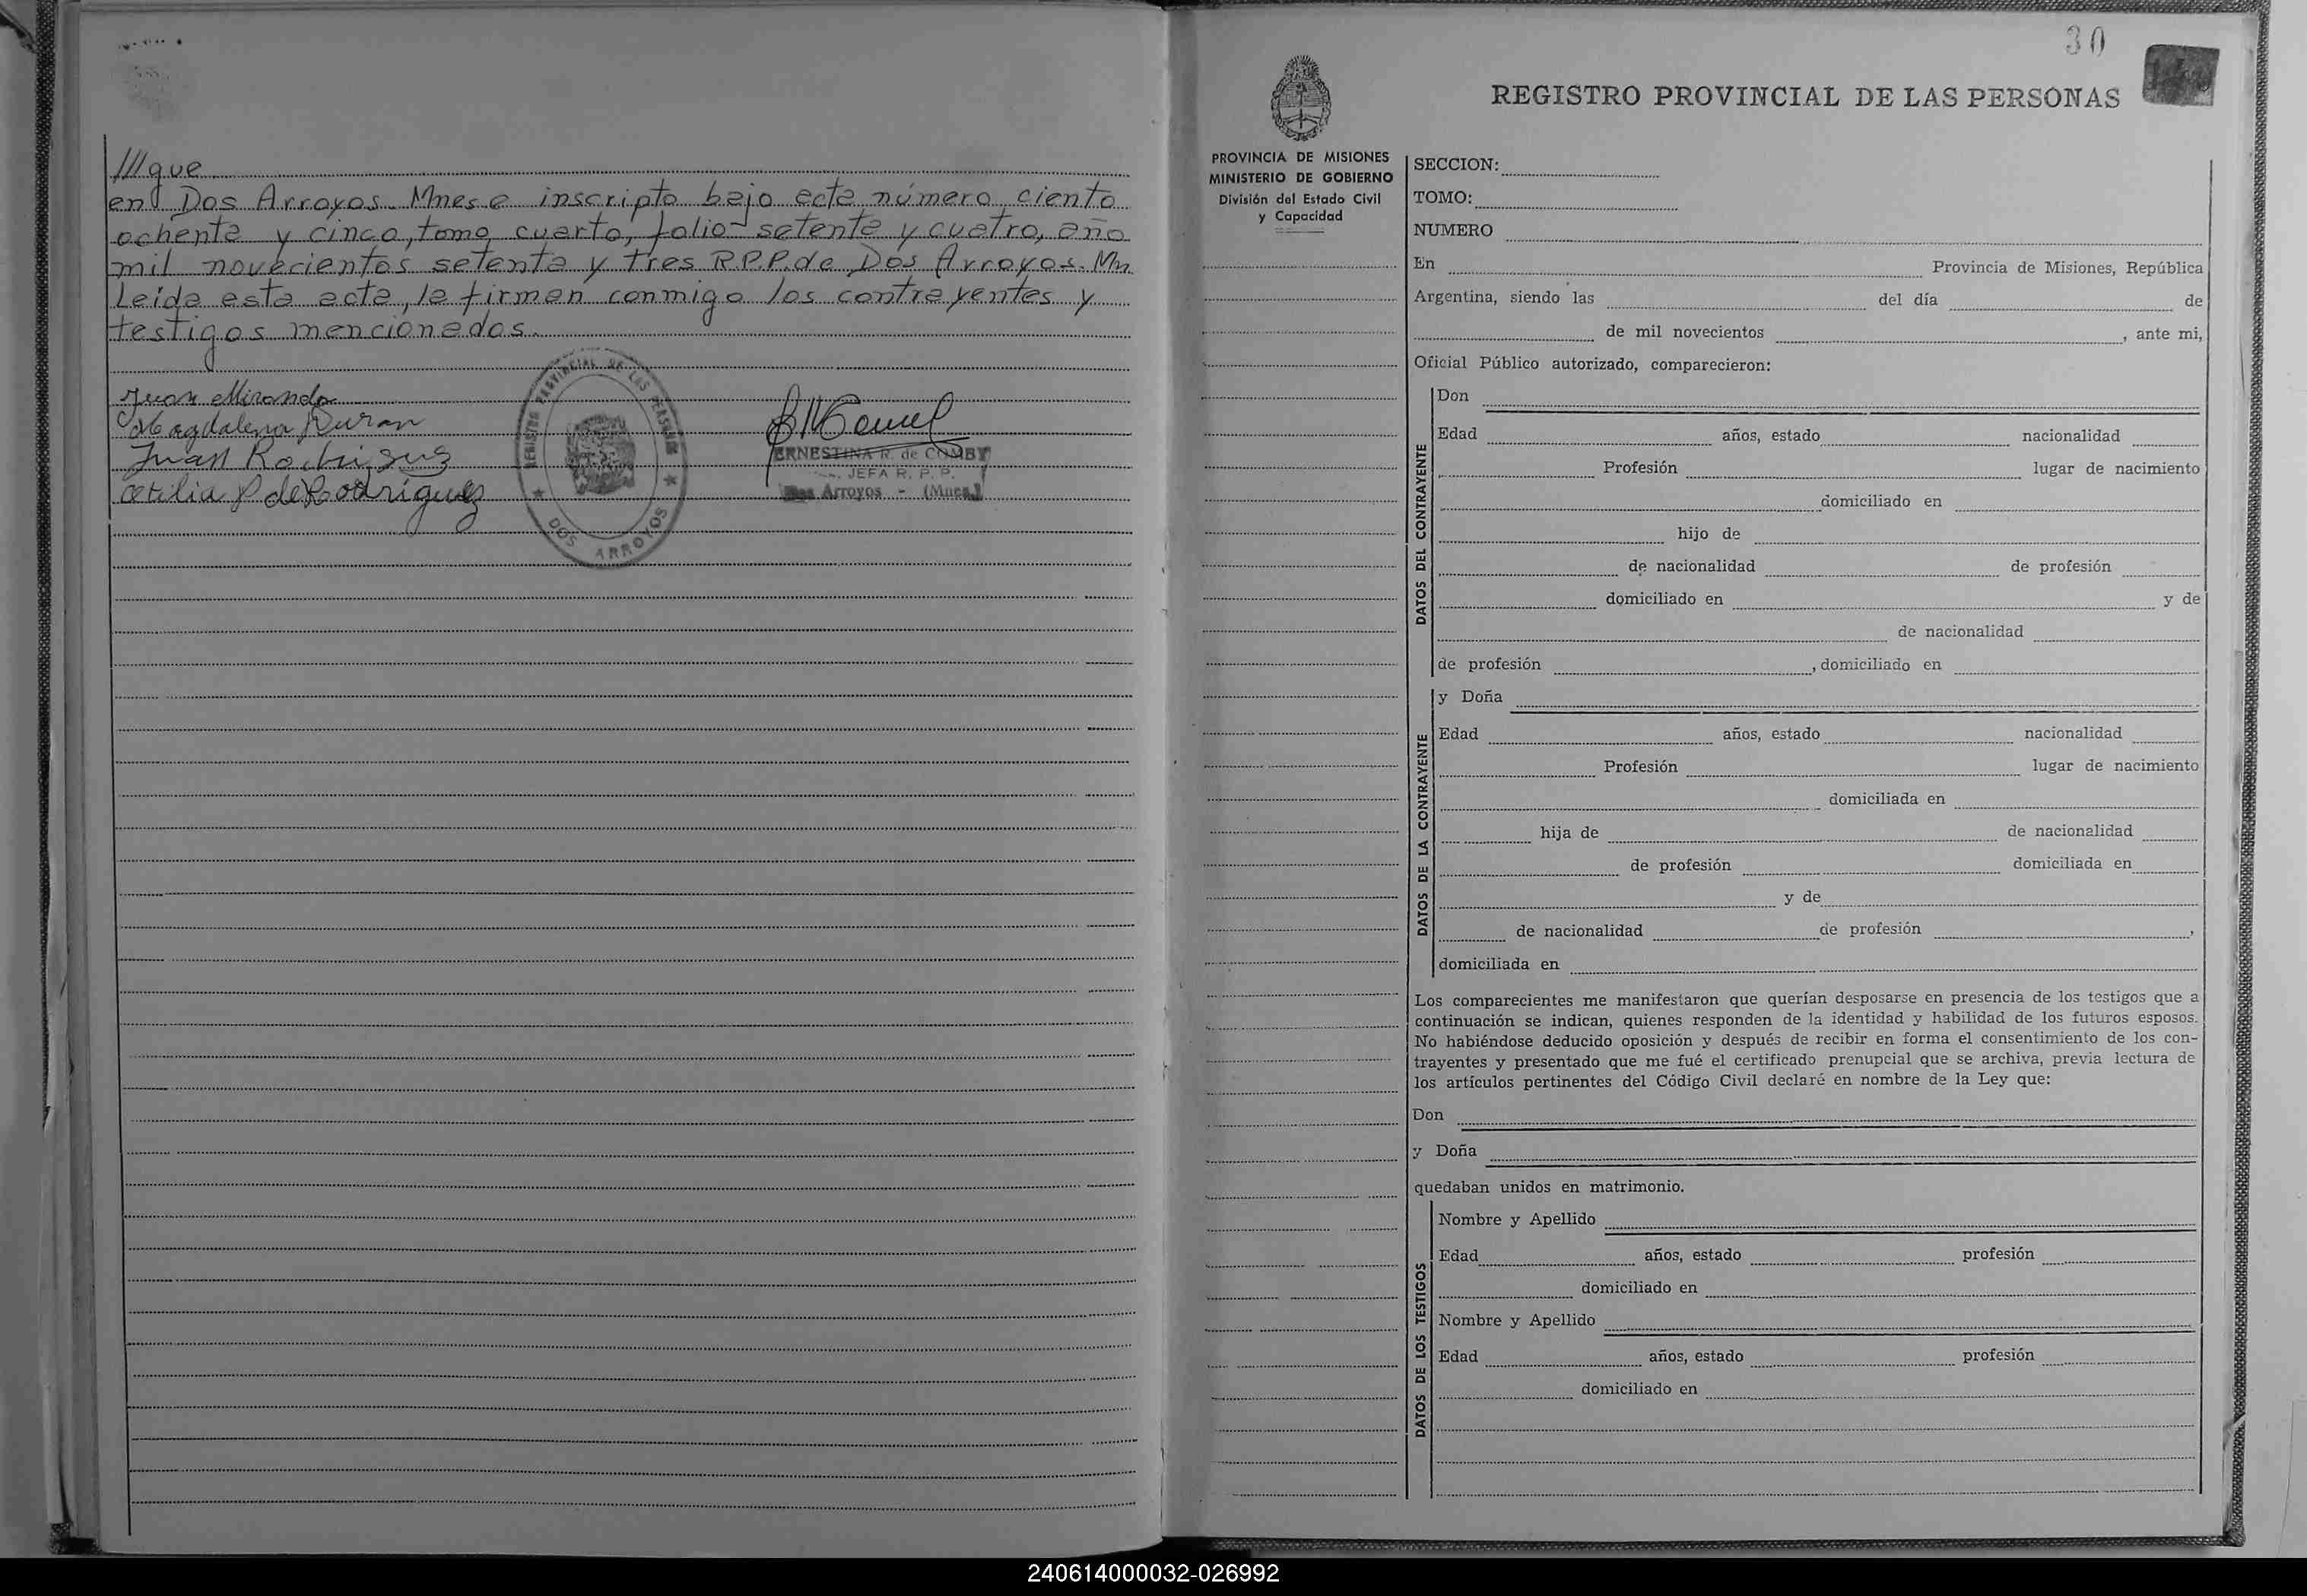 ///que
en Dos Arroyos. Mnes.e inscripto bajo acta número ciento
ochenta y cinco, tomo cuarto, folio setenta y cuatro, año
mil novecientos setenta y tres R.P.P. de Dos Arroyos. Mn
Leída esta acta, la firman conmigo los contrayentes y
testigos mencionados.
Juan Miranda
Magdalena Duran
Juan Rodriguez
Otilia P de Rodriguez
REGISTRO PROVINCIAL DE LAS PERSONAS
DOS ARROYOS
ERNESTINA R. de COMBY
JEFA R. P. P.
Dos Arroyos - (Mnes.)
30
REGISTRO PROVINCIAL DE LAS PERSONAS
PROVINCIA DE MISIONES
MINISTERIO DE GOBIERNO
División del Estado Civil
y Capacidad
SECCION:
TOMO:
NUMERO
En Provincia de Misiones, República
Argentina, siendo las del día de
de mil novecientos , ante mi,
Oficial Público autorizado, comparecieron:
DATOS DEL CONTRAYENTE
Don
Edad años, estado nacionalidad
Profesión lugar de nacimiento
domiciliado en
hijo de
de nacionalidad de profesión
domiciliado en y de
de nacionalidad
de profesión , domiciliado en
DATOS DE LA CONTRAYENTE
y Doña
Edad años, estado nacionalidad
Profesión lugar de nacimiento
domiciliada en
hija de de nacionalidad
de profesión domiciliada en
y de
de nacionalidad de profesión ,
domiciliada en
Los comparecientes me manifestaron que querían desposarse en presencia de los testigos que a
continuación se indican, quienes responden de la identidad y habilidad de los futuros esposos.
No habiéndose deducido oposición y después de recibir en forma el consentimiento de los con-
trayentes y presentado que me fué el certificado prenupcial que se archiva, previa lectura de
los artículos pertinentes del Código Civil declaré en nombre de la Ley que:
Don
y Doña
quedaban unidos en matrimonio.
DATOS DE LOS TESTIGOS
Nombre y Apellido
Edad años, estado profesión
domiciliado en
Nombre y Apellido
Edad años, estado profesión
domiciliado en
240614000032-026992